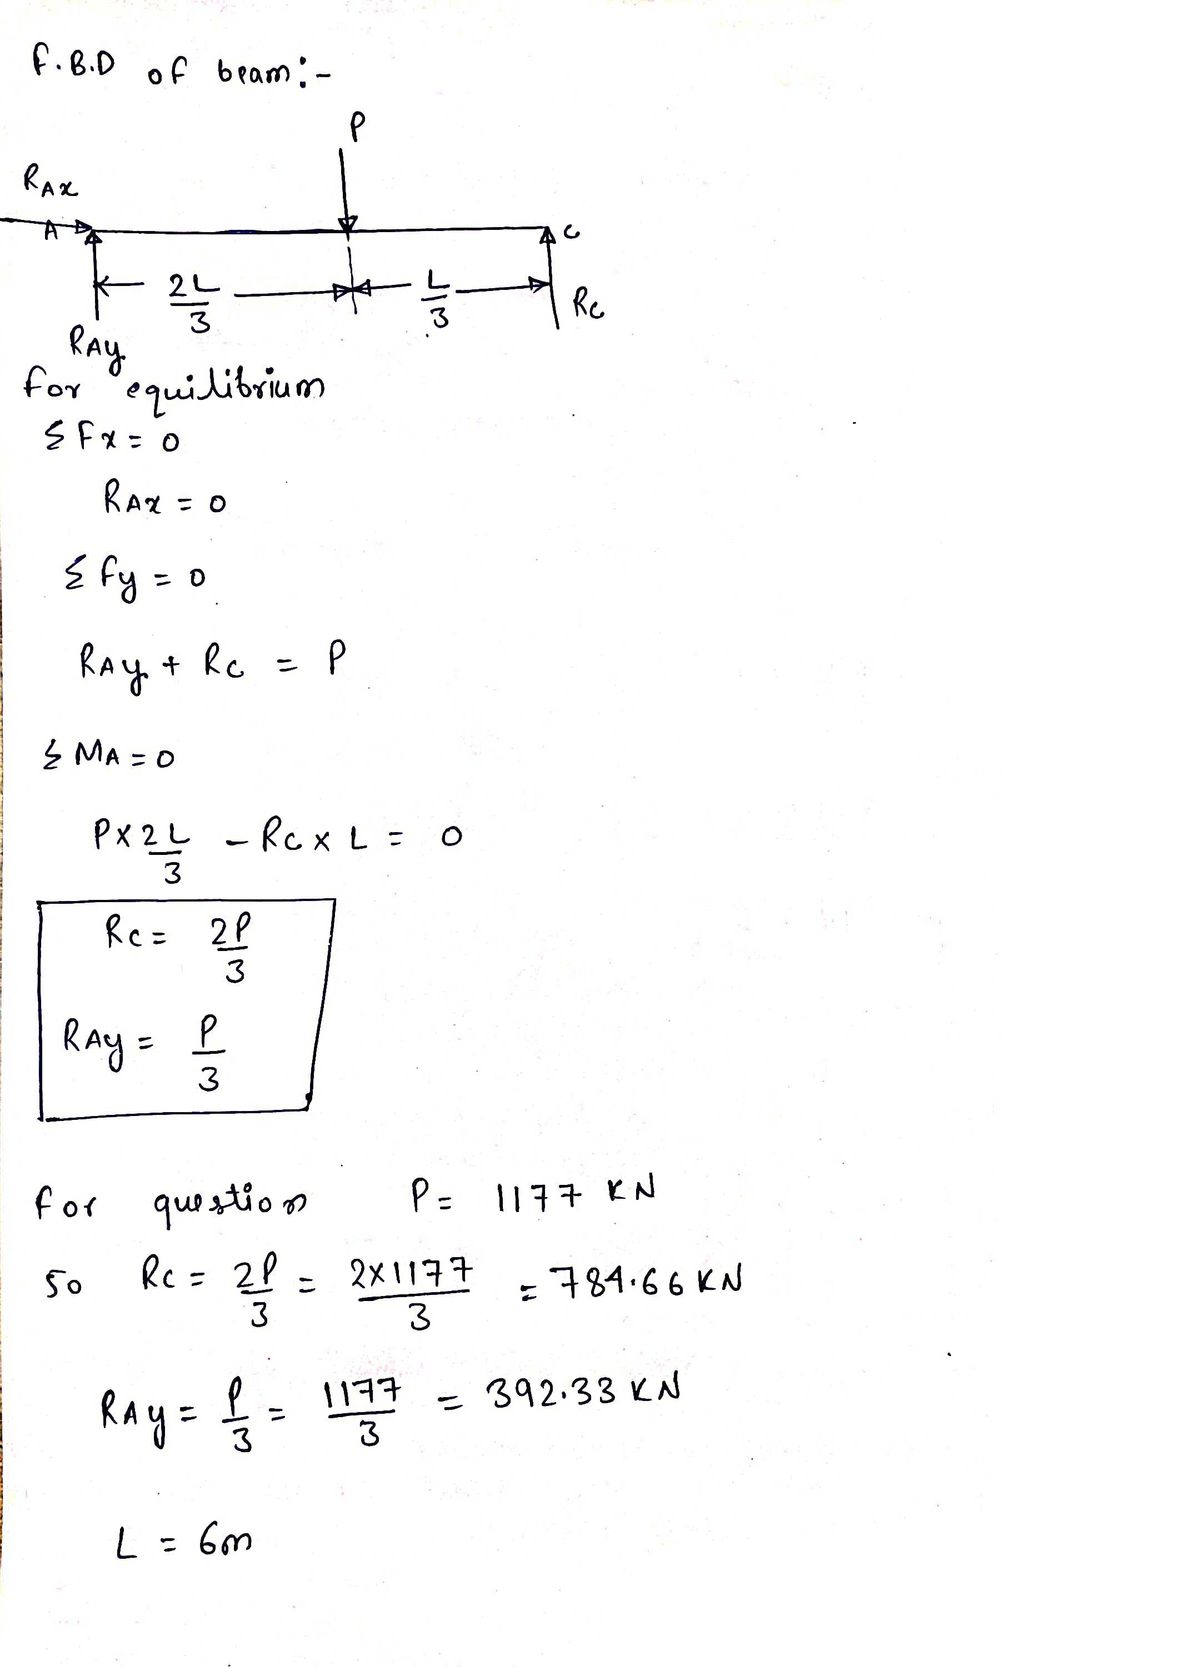 F.B.D of beam:-
P
RAx
A
C
2L/3
L/3
RAy
Rc
for equilibrium
ΣFx = 0
RAx = 0
Σfy = 0
RAy + Rc = P
ΣMA = 0
P x 2L/3 - Rc x L = 0
Rc = 2P/3
RAy = P/3
for question P = 1177 KN
so Rc = 2P/3 = 2x1177/3 = 784.66 KN
RAy = P/3 = 1177/3 = 392.33 KN
L = 6m